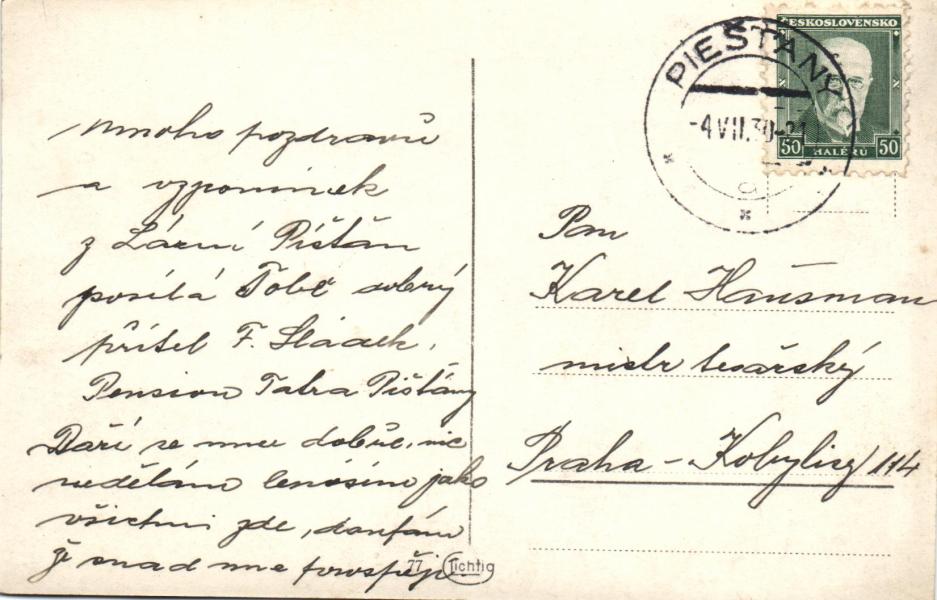 ČESKOSLOVENSKO
50 HALÉŘŮ 50
PIEŠŤANY
-4.VII.30-21
a
Mnoho pozdravů
a vzpomínek
z Lázní Píšťan
posílá Tobě dobrý
přítel F. Sládek.
Pension Tatra Píšťany
Daří se mne dobře, nic
nedělám lenošim jako
všichni zde, doufám
že snad mne prospěje
Pan
Karel Hausman
mistr tesařský
Praha - Kobylisy 114
77 Tichtig